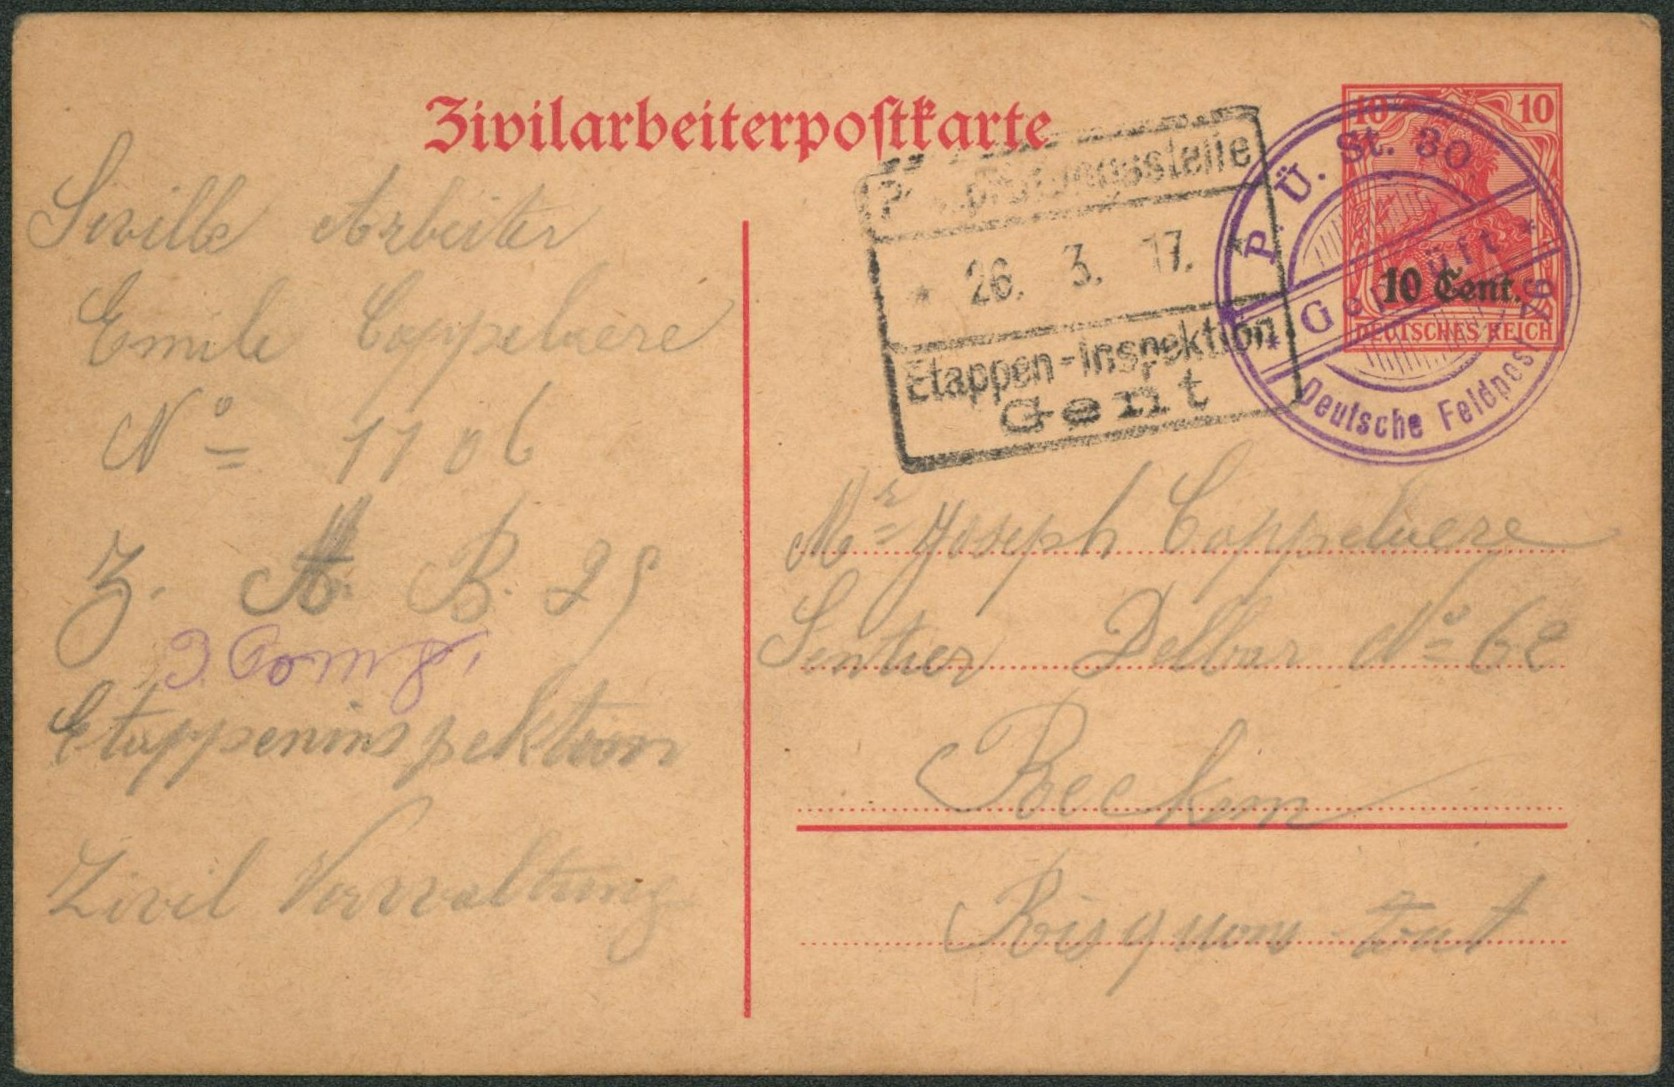 Zivilarbeiterpostkarte
10 10
10 Cent.
DEUTSCHES REICH
P. Ü. St. 30
Geprüft
Deutsche Feldpost
26. 3. 17.
Etappen-Inspektion
Gent
Siville Arbeiter
Emile Coppeluere
Nº 1106
Z. A. B. 29
3 Comp.
Etappeninspektion
Zivil Verwaltung
Mr Joseph Coppeluere
Sentier Delbar Nº 62
Reckem
Risquons tout